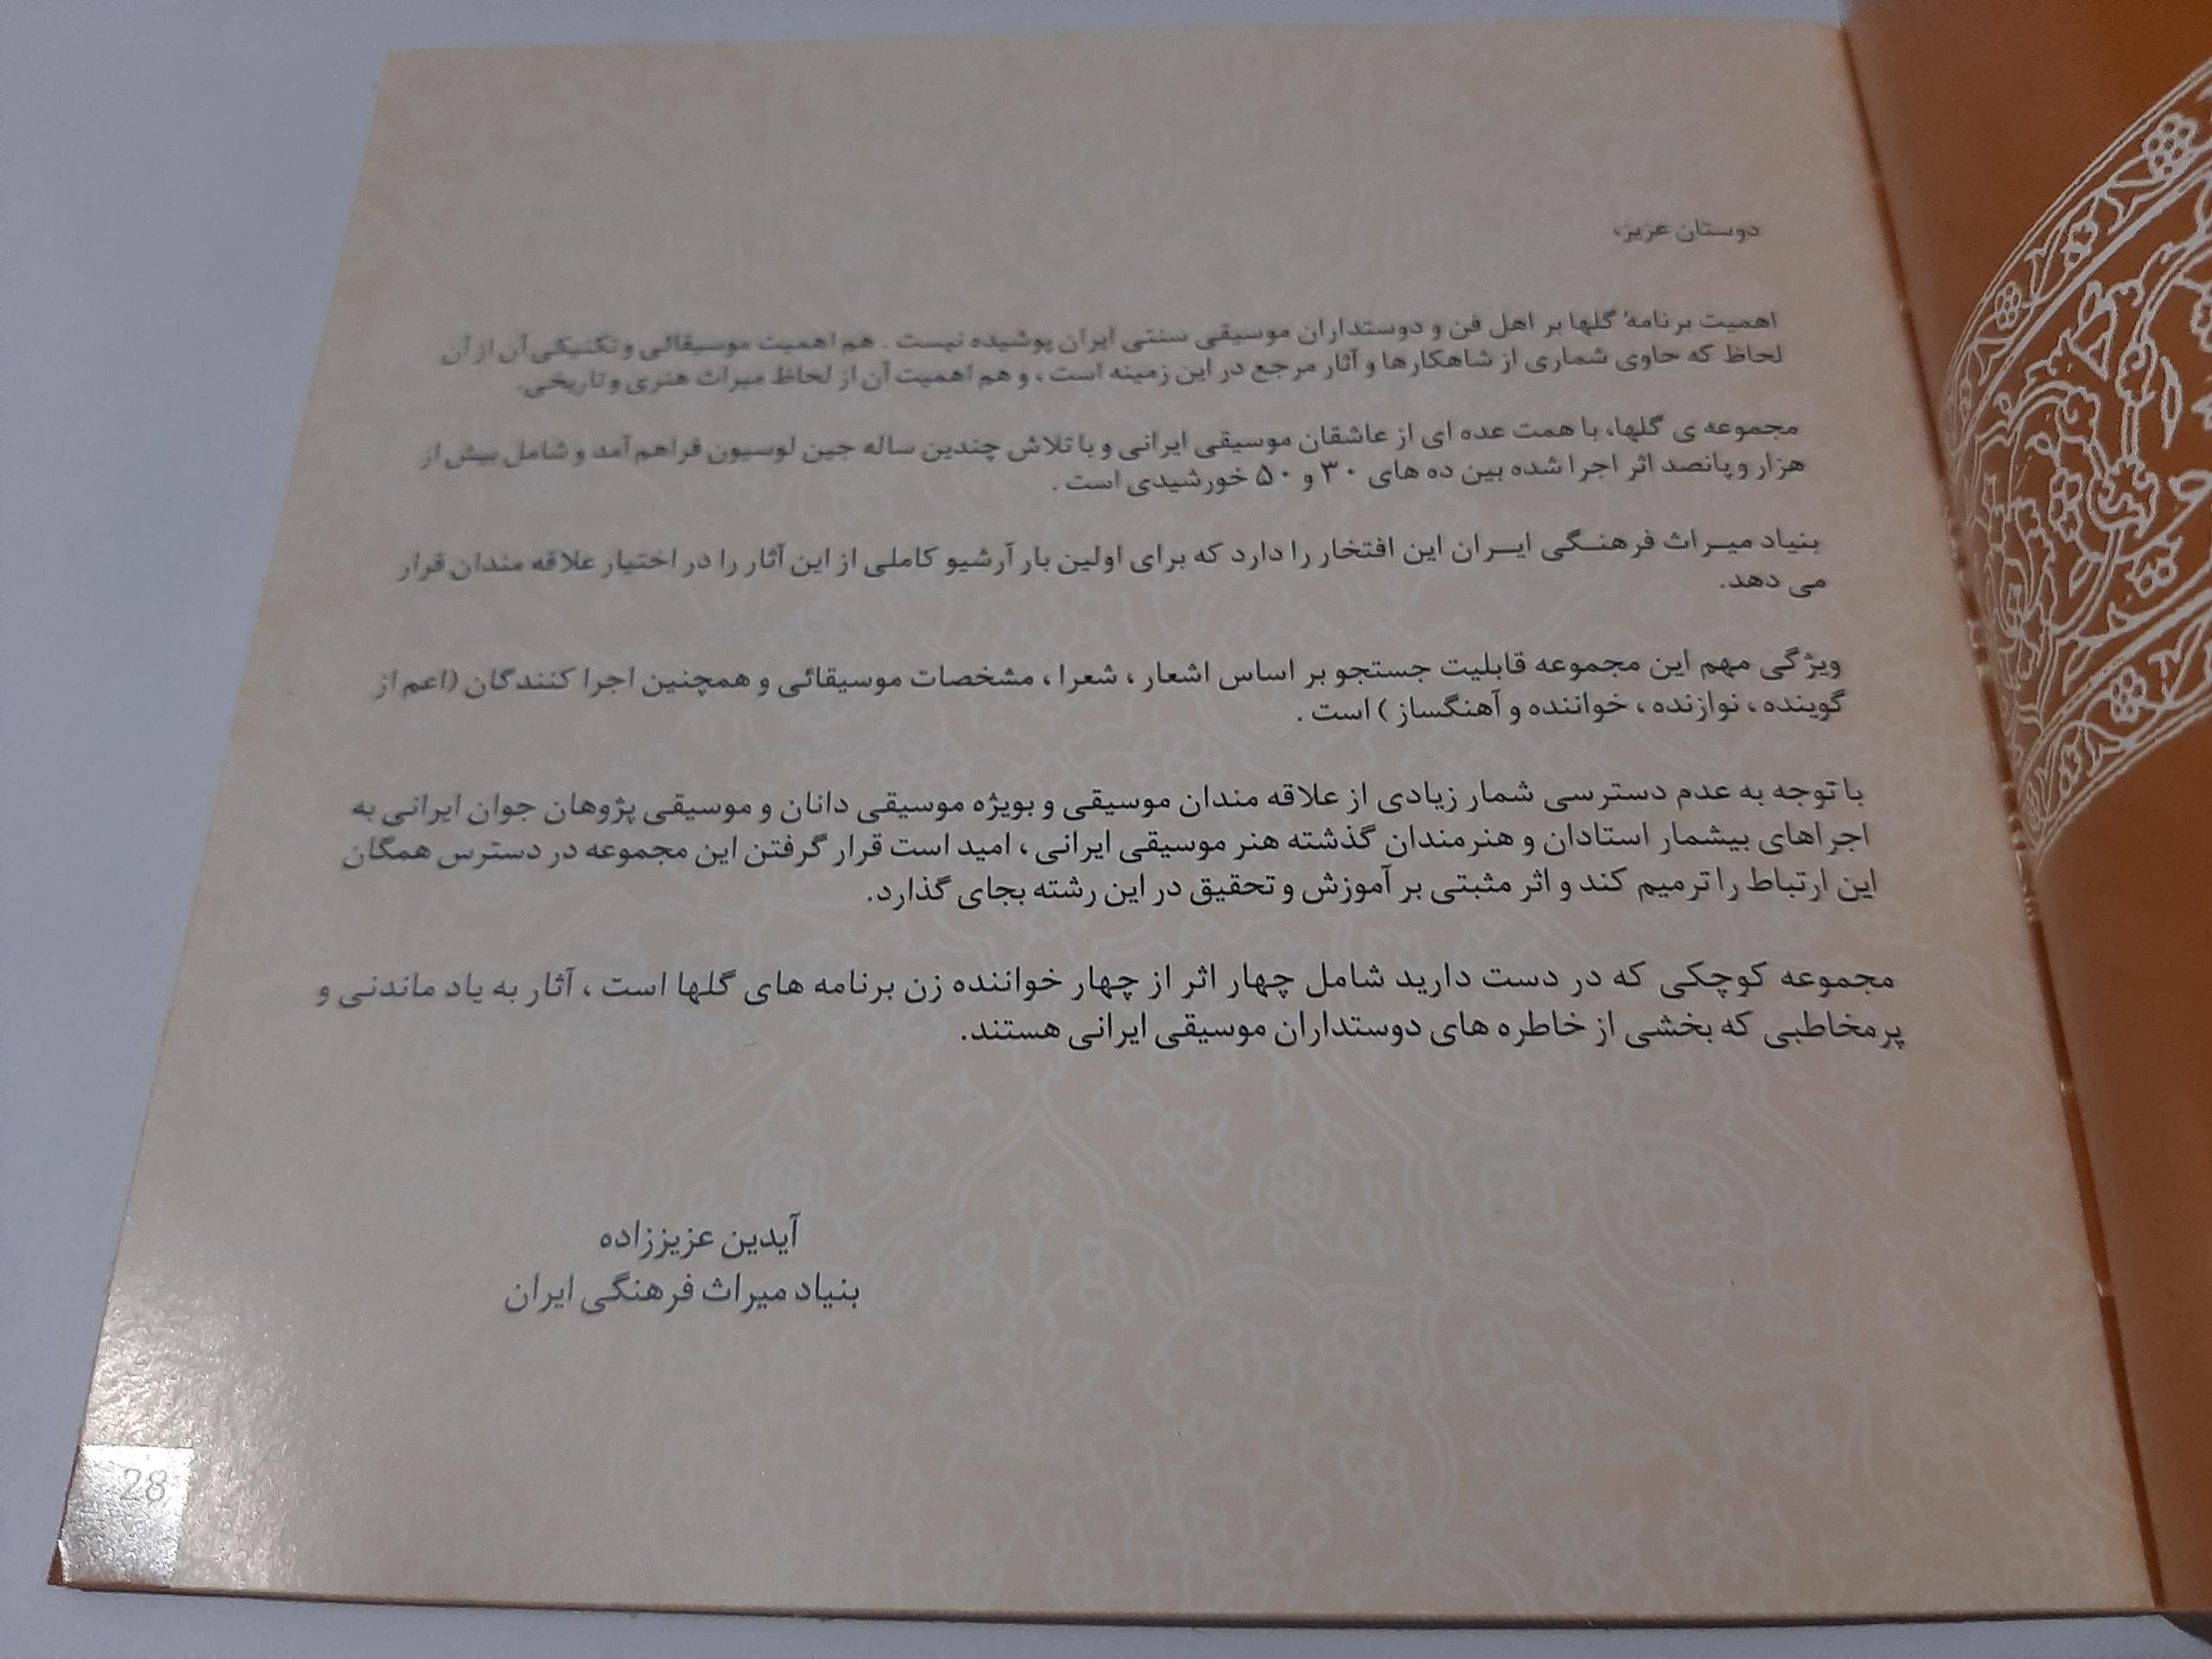 دوستان عزیز،
اهمیت برنامهٔ گلها بر اهل فن و دوستداران موسیقی سنتی ایران پوشیده نیست . هم اهمیت موسیقائی و تکنیکی آن از آن
لحاظ که حاوی شماری از شاهکارها و آثار مرجع در این زمینه است ، و هم اهمیت آن از لحاظ میراث هنری و تاریخی.
مجموعه ی گلها، با همت عده ای از عاشقان موسیقی ایرانی و با تلاش چندین ساله جین لوسیون فراهم آمد و شامل بیش از
هزار و پانصد اثر اجرا شده بین ده های ۳۰ و ۵۰ خورشیدی است .
بنیاد میـراث فرهنـگی ایـران این افتخار را دارد که برای اولین بار آرشیو کاملی از این آثار را در اختیار علاقه مندان قرار
می دهد.
ویژگی مهم این مجموعه قابلیت جستجو بر اساس اشعار ، شعرا ، مشخصات موسیقائی و همچنین اجرا کنندگان (اعم از
گوینده ، نوازنده ، خواننده و آهنگساز ) است .
با توجه به عدم دسترسی شمار زیادی از علاقه مندان موسیقی و بویژه موسیقی دانان و موسیقی پژوهان جوان ایرانی به
اجراهای بیشمار استادان و هنرمندان گذشته هنر موسیقی ایرانی ، امید است قرار گرفتن این مجموعه در دسترس همگان
این ارتباط را ترمیم کند و اثر مثبتی بر آموزش و تحقیق در این رشته بجای گذارد.
مجموعه کوچکی که در دست دارید شامل چهار اثر از چهار خواننده زن برنامه های گلها است ، آثار به یاد ماندنی و
پرمخاطبی که بخشی از خاطره های دوستداران موسیقی ایرانی هستند.
آیدین عزیززاده
بنیاد میراث فرهنگی ایران
28